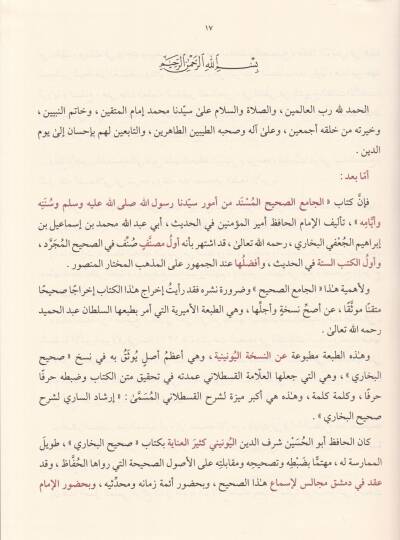 ١٧
بسم الله الرحمن الرحيم
الحمد لله رب العالمين، والصلاة والسلام علىٰ سيّدنا محمد إمام المتقين، وخاتم النبيين،
وخيرته من خلقه أجمعين، وعلىٰ آله وصحبه الطيبين الطاهرين، والتابعين لهم بإحسان إلىٰ يوم
الدين .
أمّا بعد :
فإنَّ كتاب « الجامع الصحيح المُسْنَد من أمور سيّدنا رسول الله صلى الله عليه وسلم وسُنَنِه
وأيّامِه » ، تأليف الإمام الحافظ أمير المؤمنين في الحديث، أبي عبد الله محمد بن إسماعيل بن
إبراهيم الجُعْفي البخاري ، رحمه الله تعالىٰ، قد اشتهر بأنه أولُ مصنَّفٍ صُنِّف في الصحيح المُجَرَّد ،
وأولُ الكتب الستة في الحديث ، وأفضلُها عند الجمهور على المذهب المختار المنصور .
ولأهمية هٰذا « الجامع الصحيح » وضرورة نشره فقد رأيتُ إخراج هٰذا الكتاب إخراجًا صحيحًا
متقنًا موثَّقًا ، عن أصحِّ نسخةٍ وأجلِّها ، وهي الطبعة الأميرية التي أمر بطبعها السلطان عبد الحميد
رحمه الله تعالىٰ .
وهٰذه الطبعة مطبوعة عن النسخة اليُونينية، وهي أعظمُ أصلٍ يُوثَقُ به في نسخ « صحيح
البخاري » ، وهي التي جعلها العلّامة القسطلاني عمدته في تحقيق متن الكتاب وضبطه حرفًا
حرفًا ، وكلمة كلمة ، وهٰذه هي أكبر ميزة لشرح القسطلاني المُسَمَّىٰ : « إرشاد الساري لشرح
صحيح البخاري » .
كان الحافظ أبو الحُسَيْن شرف الدين اليُونيني كثيرَ العناية بكتاب « صحيح البخاري » ، طويلَ
الممارسة له ، مهتمًّا بضَبْطِه وتصحيحه ومقابلتِه على الأصول الصحيحة التي رواها الحُفَّاظ ، وقد
عقد في دمشق مجالس لإسماع هٰذا الصحيح ، وبحضور أئمة زمانه ومحدِّثيه ، وبحضور الإمام